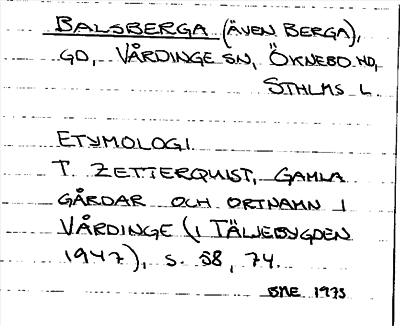 BALSBERGA (ÄVEN BERGA),
GD, VÅRDINGE SN, ÖKNEBO HD,
STHLMS L.
ETYMOLOGI
T. ZETTERQUIST, GAMLA
GÅRDAR OCH ORTNAMN I
VÅRDINGE (I TÄLJEBYGDEN
1947), S. 58, 74.
BME 1973